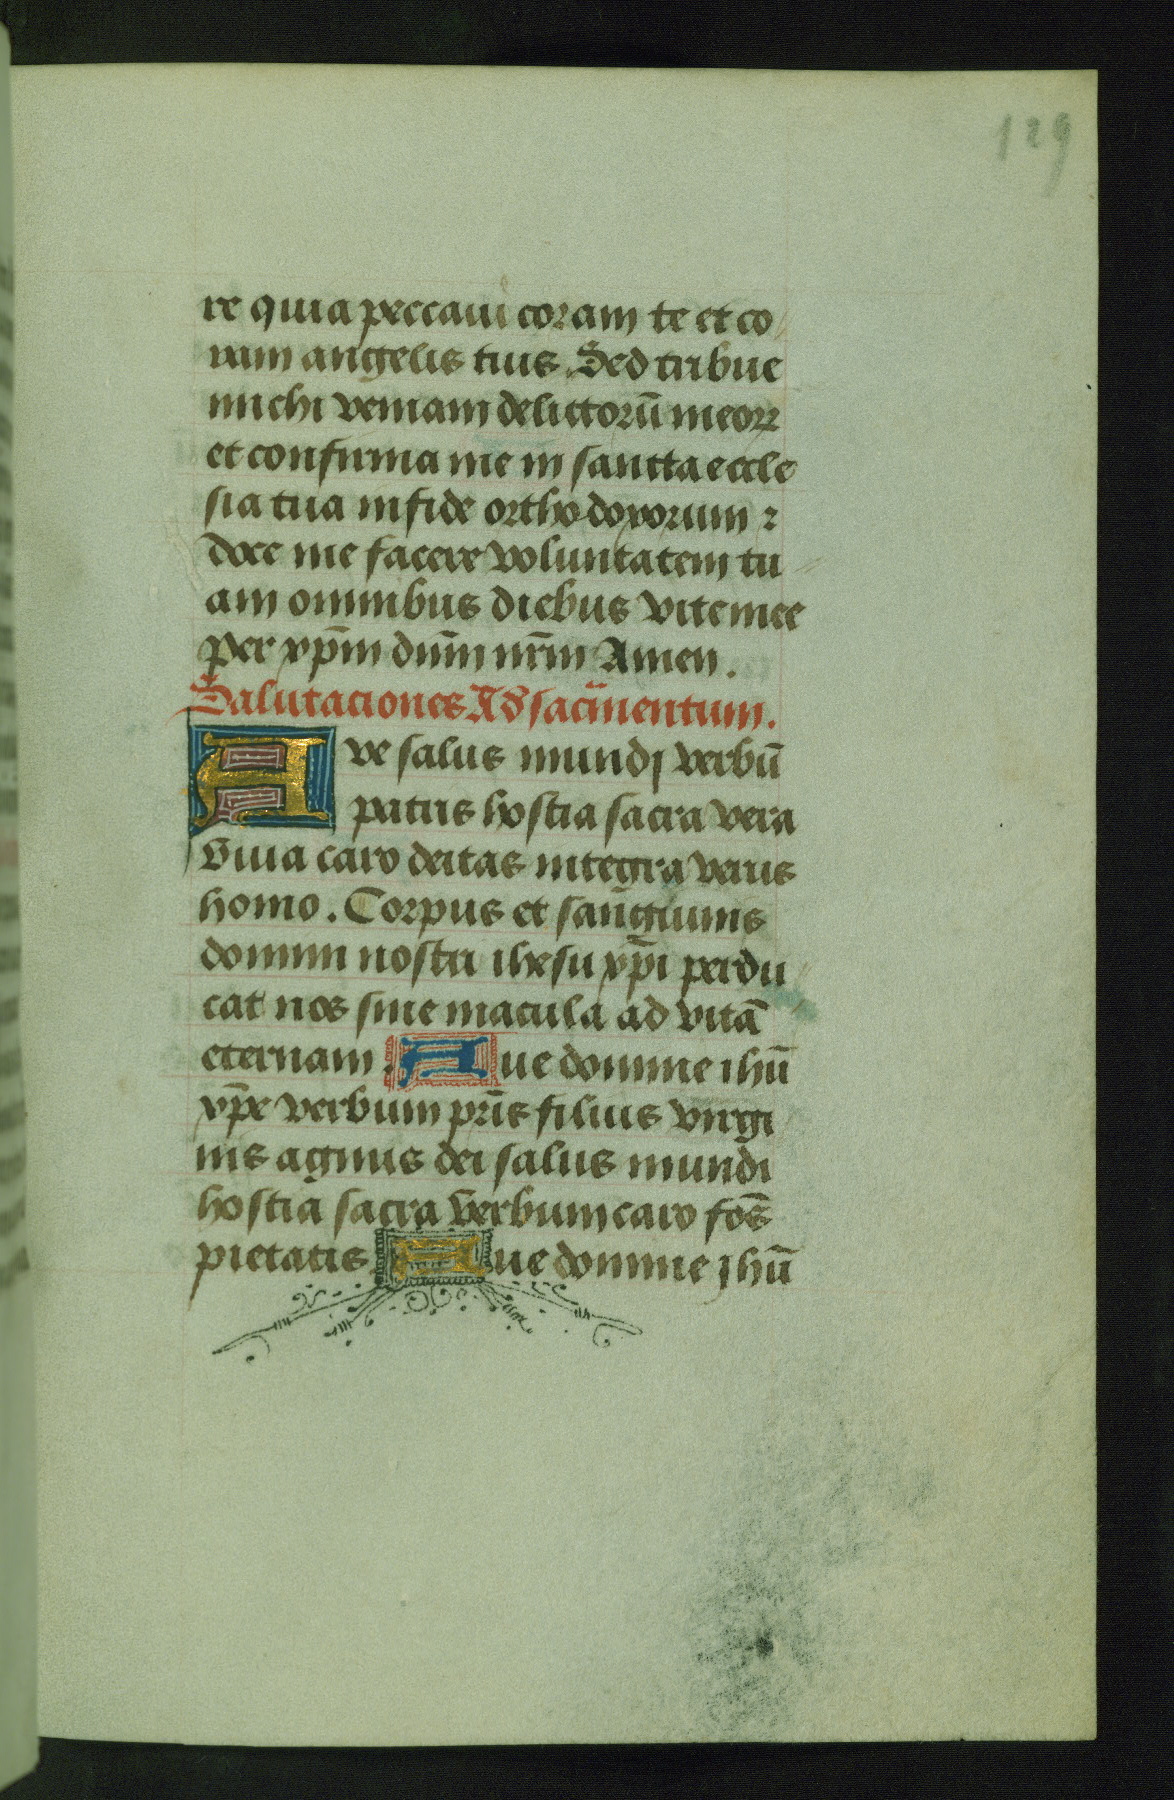 129
re quia peccaui coram te et co
ram angelis tuis. Sed tribue
michi veniam delictorū meoꝝ
et confirma me in sancta eccle
sia tua in fide orthodoxorum ⁊
doce me facere voluntatem tu
am omnibus diebus vite mee
per xp̄m dn̄m nr̄m Amen.
Salutaciones Ad sacr̄mentum.
Ave salus mundi verbū
patris hostia sacra vera
viua caro deitas integra verus
homo. Corpus et sang̅uinis
domini nostri ihesu xp̄i perdu
cat nos sine macula ad vitā
eternam. Aue domine ihū
xp̄e verbum pr̄is filius virgi
nis agnus dei salus mundi
hostia sacra verbum caro fōs
pietatis. Aue domine ihū